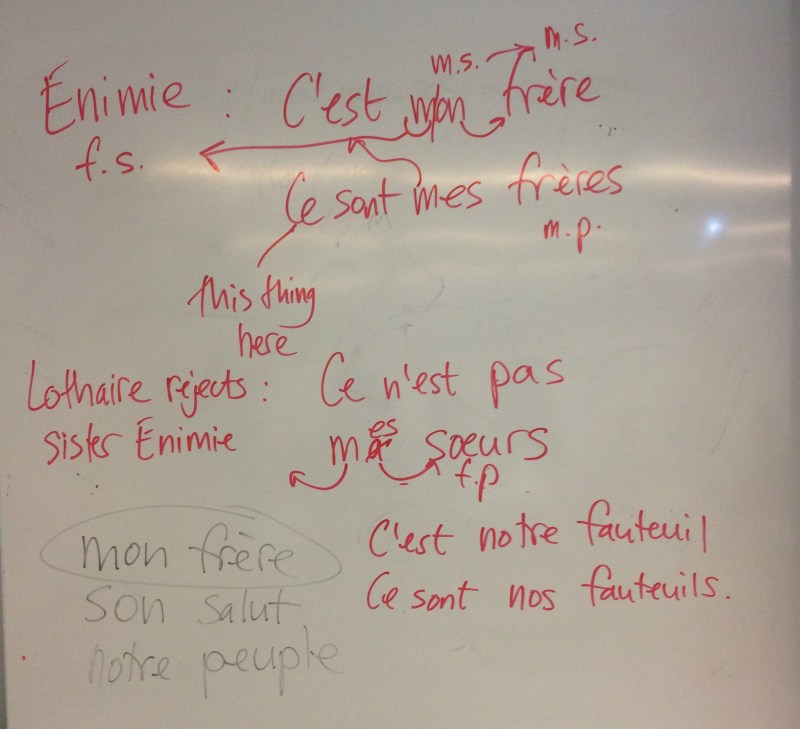 m.s. m.s.
Énimie : C'est mon frère
f.s.
Ce sont mes frères
m.p.
this thing
here
Lothaire rejects : Ce n'est pas
sister Énimie mes sœurs
f.p
mon frère C'est notre fauteuil
son salut Ce sont nos fauteuils.
notre peuple